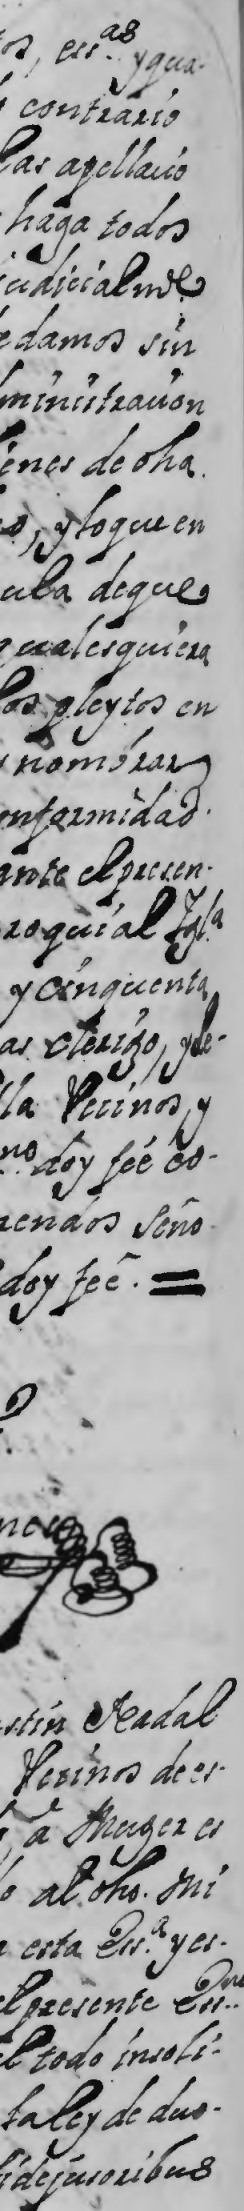 tos, essas. y qua-
contrario
las apellacio
haga todos
judicialmte
damos sin
ministracion
ienes de dha.
y lo que en
cula de que
qualesquiera
los pleytos en
nombrar
onformidad.
ante el presen-
roquial Igla.
y cinquenta
as clerigo, y de-
lla Vecinos, y
no. doy feé co-
rendos Seño-
doy feé. =
stin Nadal
Vecinos de es-
a Muger es
al dho. Mi
esta Essa. y es-
el presente Essno.
el todo insoli-
la ley de duo-
fidejusoribus